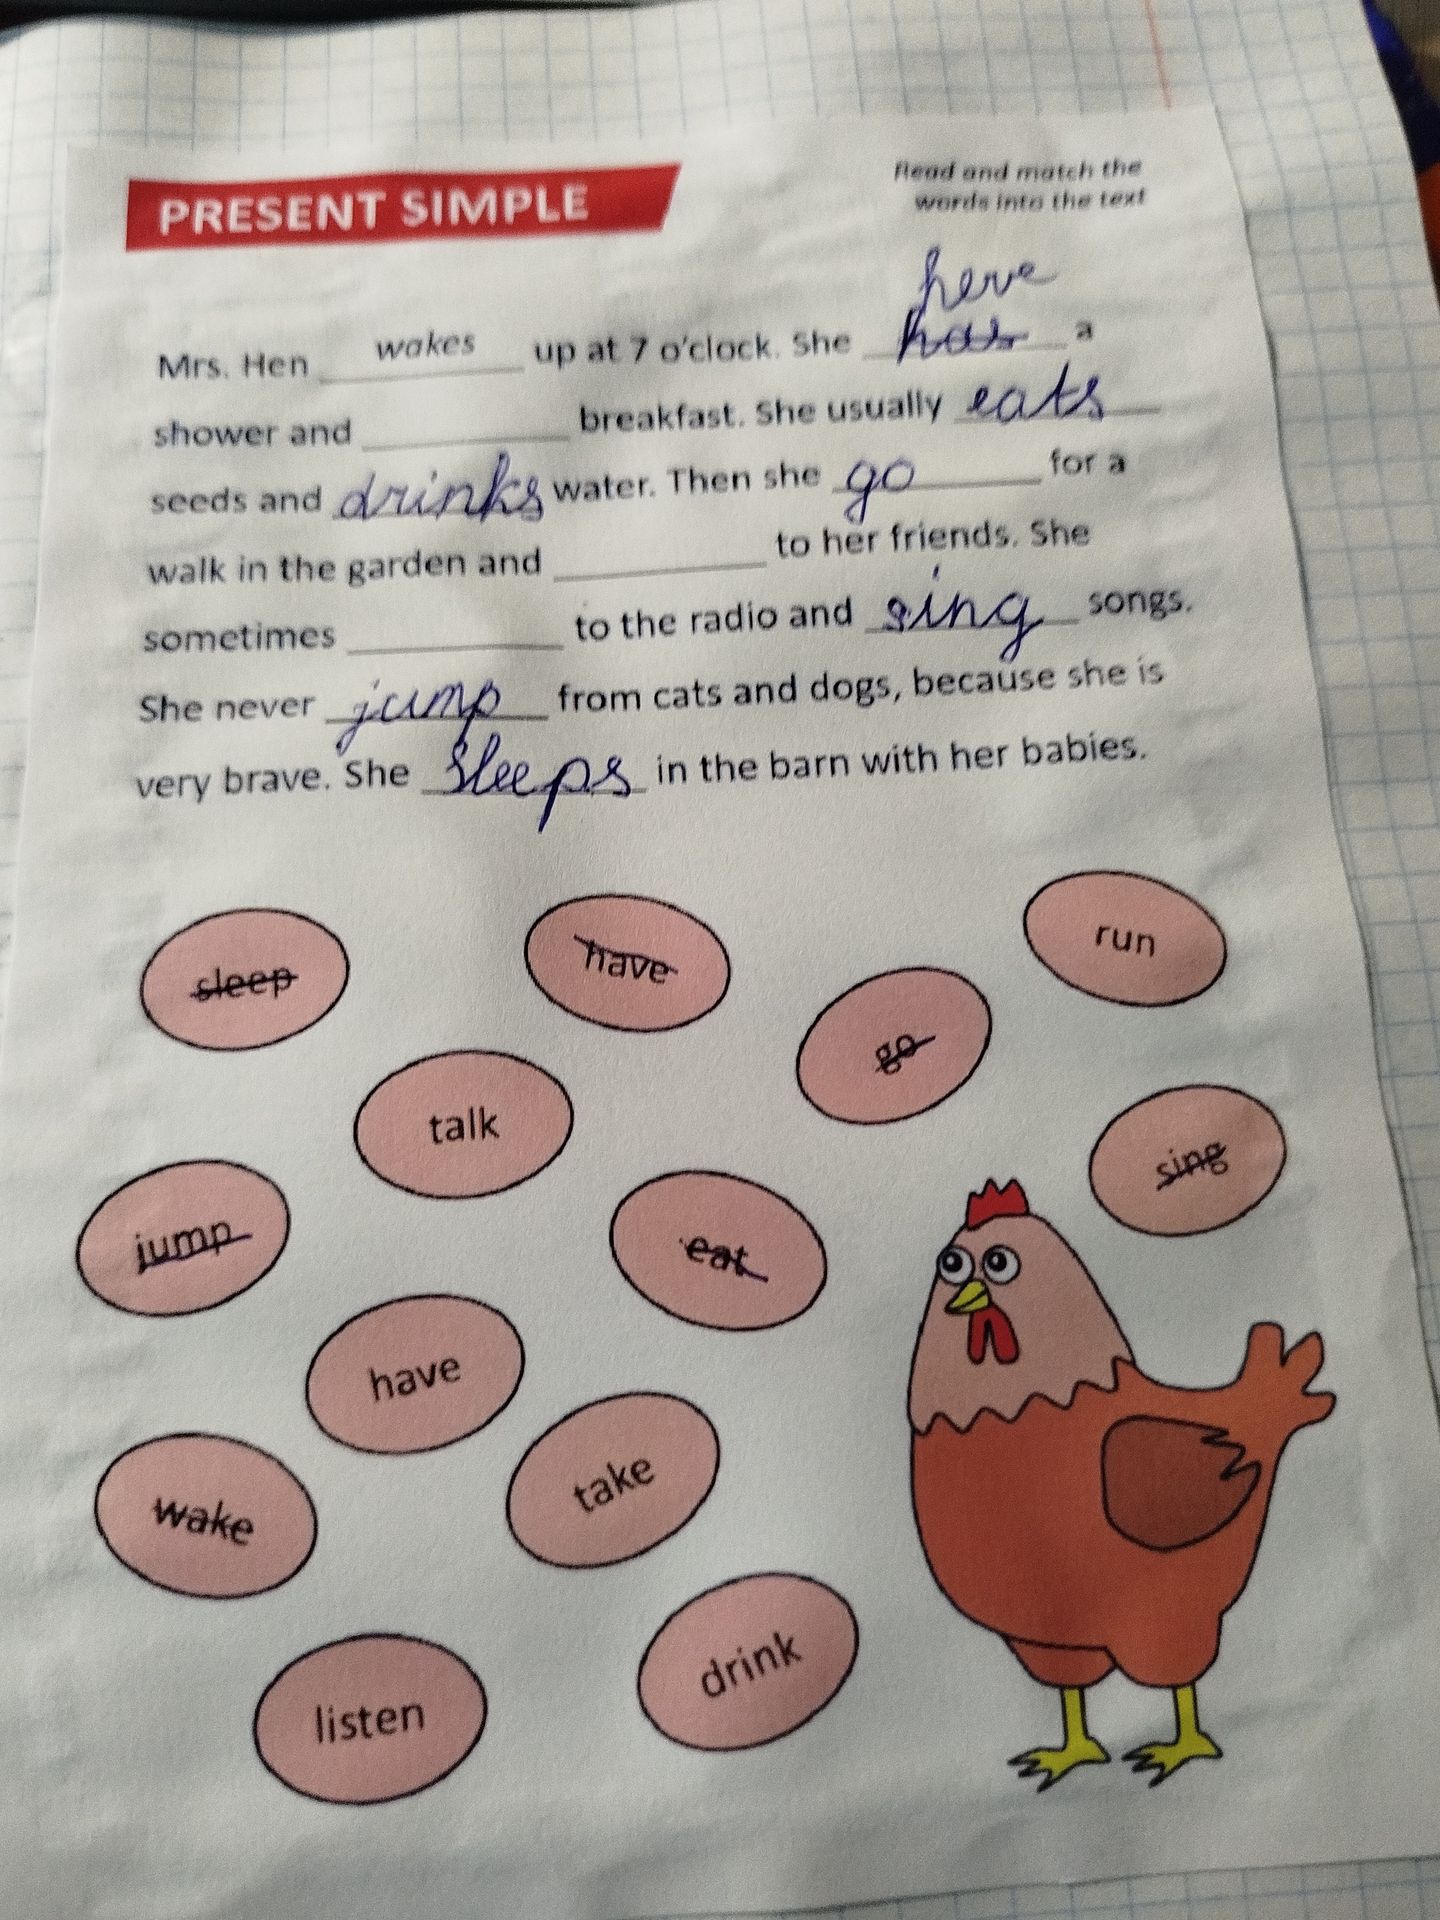 PRESENT SIMPLE
Read and match the
words into the text
heve
Mrs. Hen wakes up at 7 o'clock. She has a
shower and ___ breakfast. She usually eats
seeds and drinks water. Then she go for a
walk in the garden and ___ to her friends. She
sometimes ___ to the radio and sing songs.
She never jump from cats and dogs, because she is
very brave. She sleeps in the barn with her babies.
sleep
have
run
go
talk
sing
jump
eat
have
take
wake
drink
listen